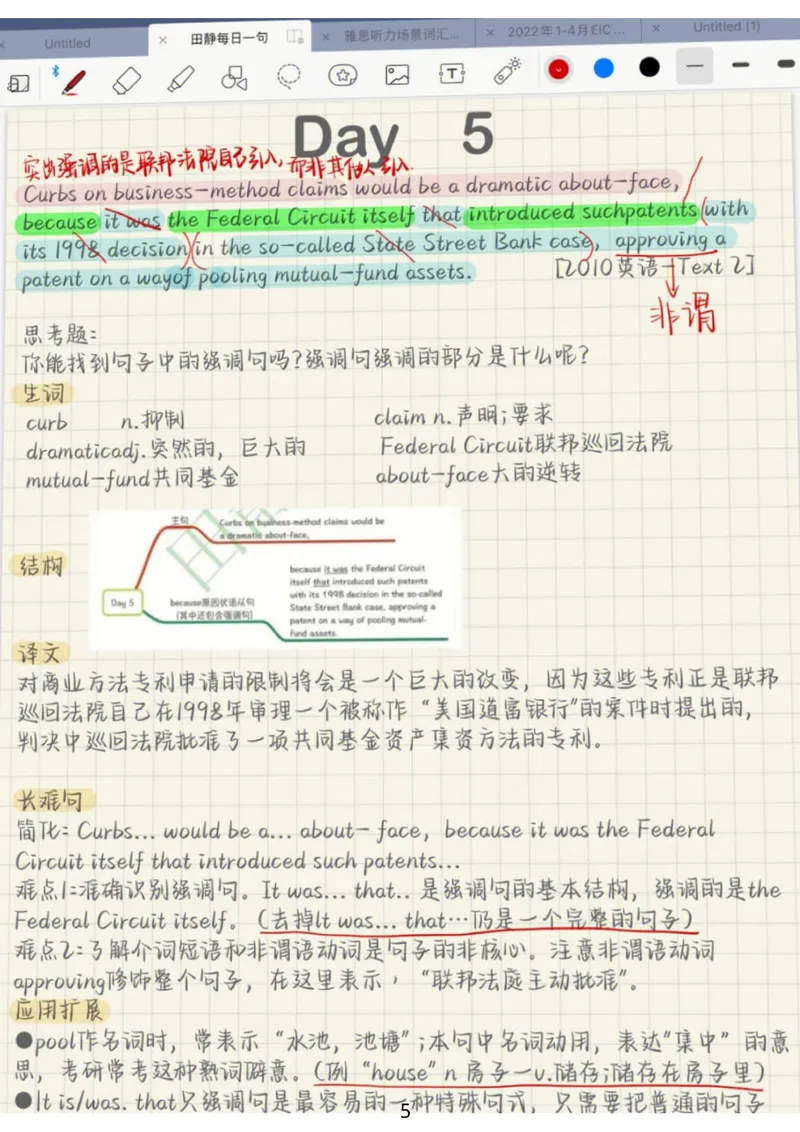 Untitled
田静每日一句
雅思听力场景词汇...
2022年1-4月EIC...
Untitled (1)
Day 5
突出强调的是联邦法院自己引入,而非其他人引入.
Curbs on business-method claims would be a dramatic about-face,
because it was the Federal Circuit itself that introduced suchpatents (with
its 1998 decision)(in the so-called State Street Bank case), approving a
patent on a wayof pooling mutual-fund assets.
[2010英语一Text 2]
非谓
思考题:
你能找到句子中的强调句吗?强调句强调的部分是什么呢?
生词
curb n.抑制
claim n.声明;要求
dramaticadj.突然的，巨大的
Federal Circuit联邦巡回法院
mutual-fund共同基金
about-face大的逆转
结构
主句
Curbs on business-method claims would be
a dramatic about-face,
Day 5
because原因状语从句
(其中还包含强调句)
because it was the Federal Circuit
itself that introduced such patents
with its 1998 decision in the so-called
State Street Bank case, approving a
patent on a way of pooling mutual-
fund assets.
译文
对商业方法专利申请的限制将会是一个巨大的改变，因为这些专利正是联邦
巡回法院自己在1998年审理一个被称作“美国道富银行"的案件时提出的，
判决中巡回法院批准了一项共同基金资产集资方法的专利。
长难句
简化: Curbs... would be a... about- face, because it was the Federal
Circuit itself that introduced such patents...
难点1:准确识别强调句。It was... that.. 是强调句的基本结构，强调的是the
Federal Circuit itself。(去掉It was... that…仍是一个完整的句子)
难点2:了解介词短语和非谓语动词是句子的非核心。注意非谓语动词
approving修饰整个句子，在这里表示，“联邦法庭主动批准”。
应用扩展
●pool作名词时，常表示“水池，池塘”;本句中名词动用，表达"集中”的意
思，考研常考这种熟词僻意。(例“house”n 房子一v.储存;储存在房子里)
●It is/was. that只强调句是最容易的一种特殊句式，只需要把普通的句子
5